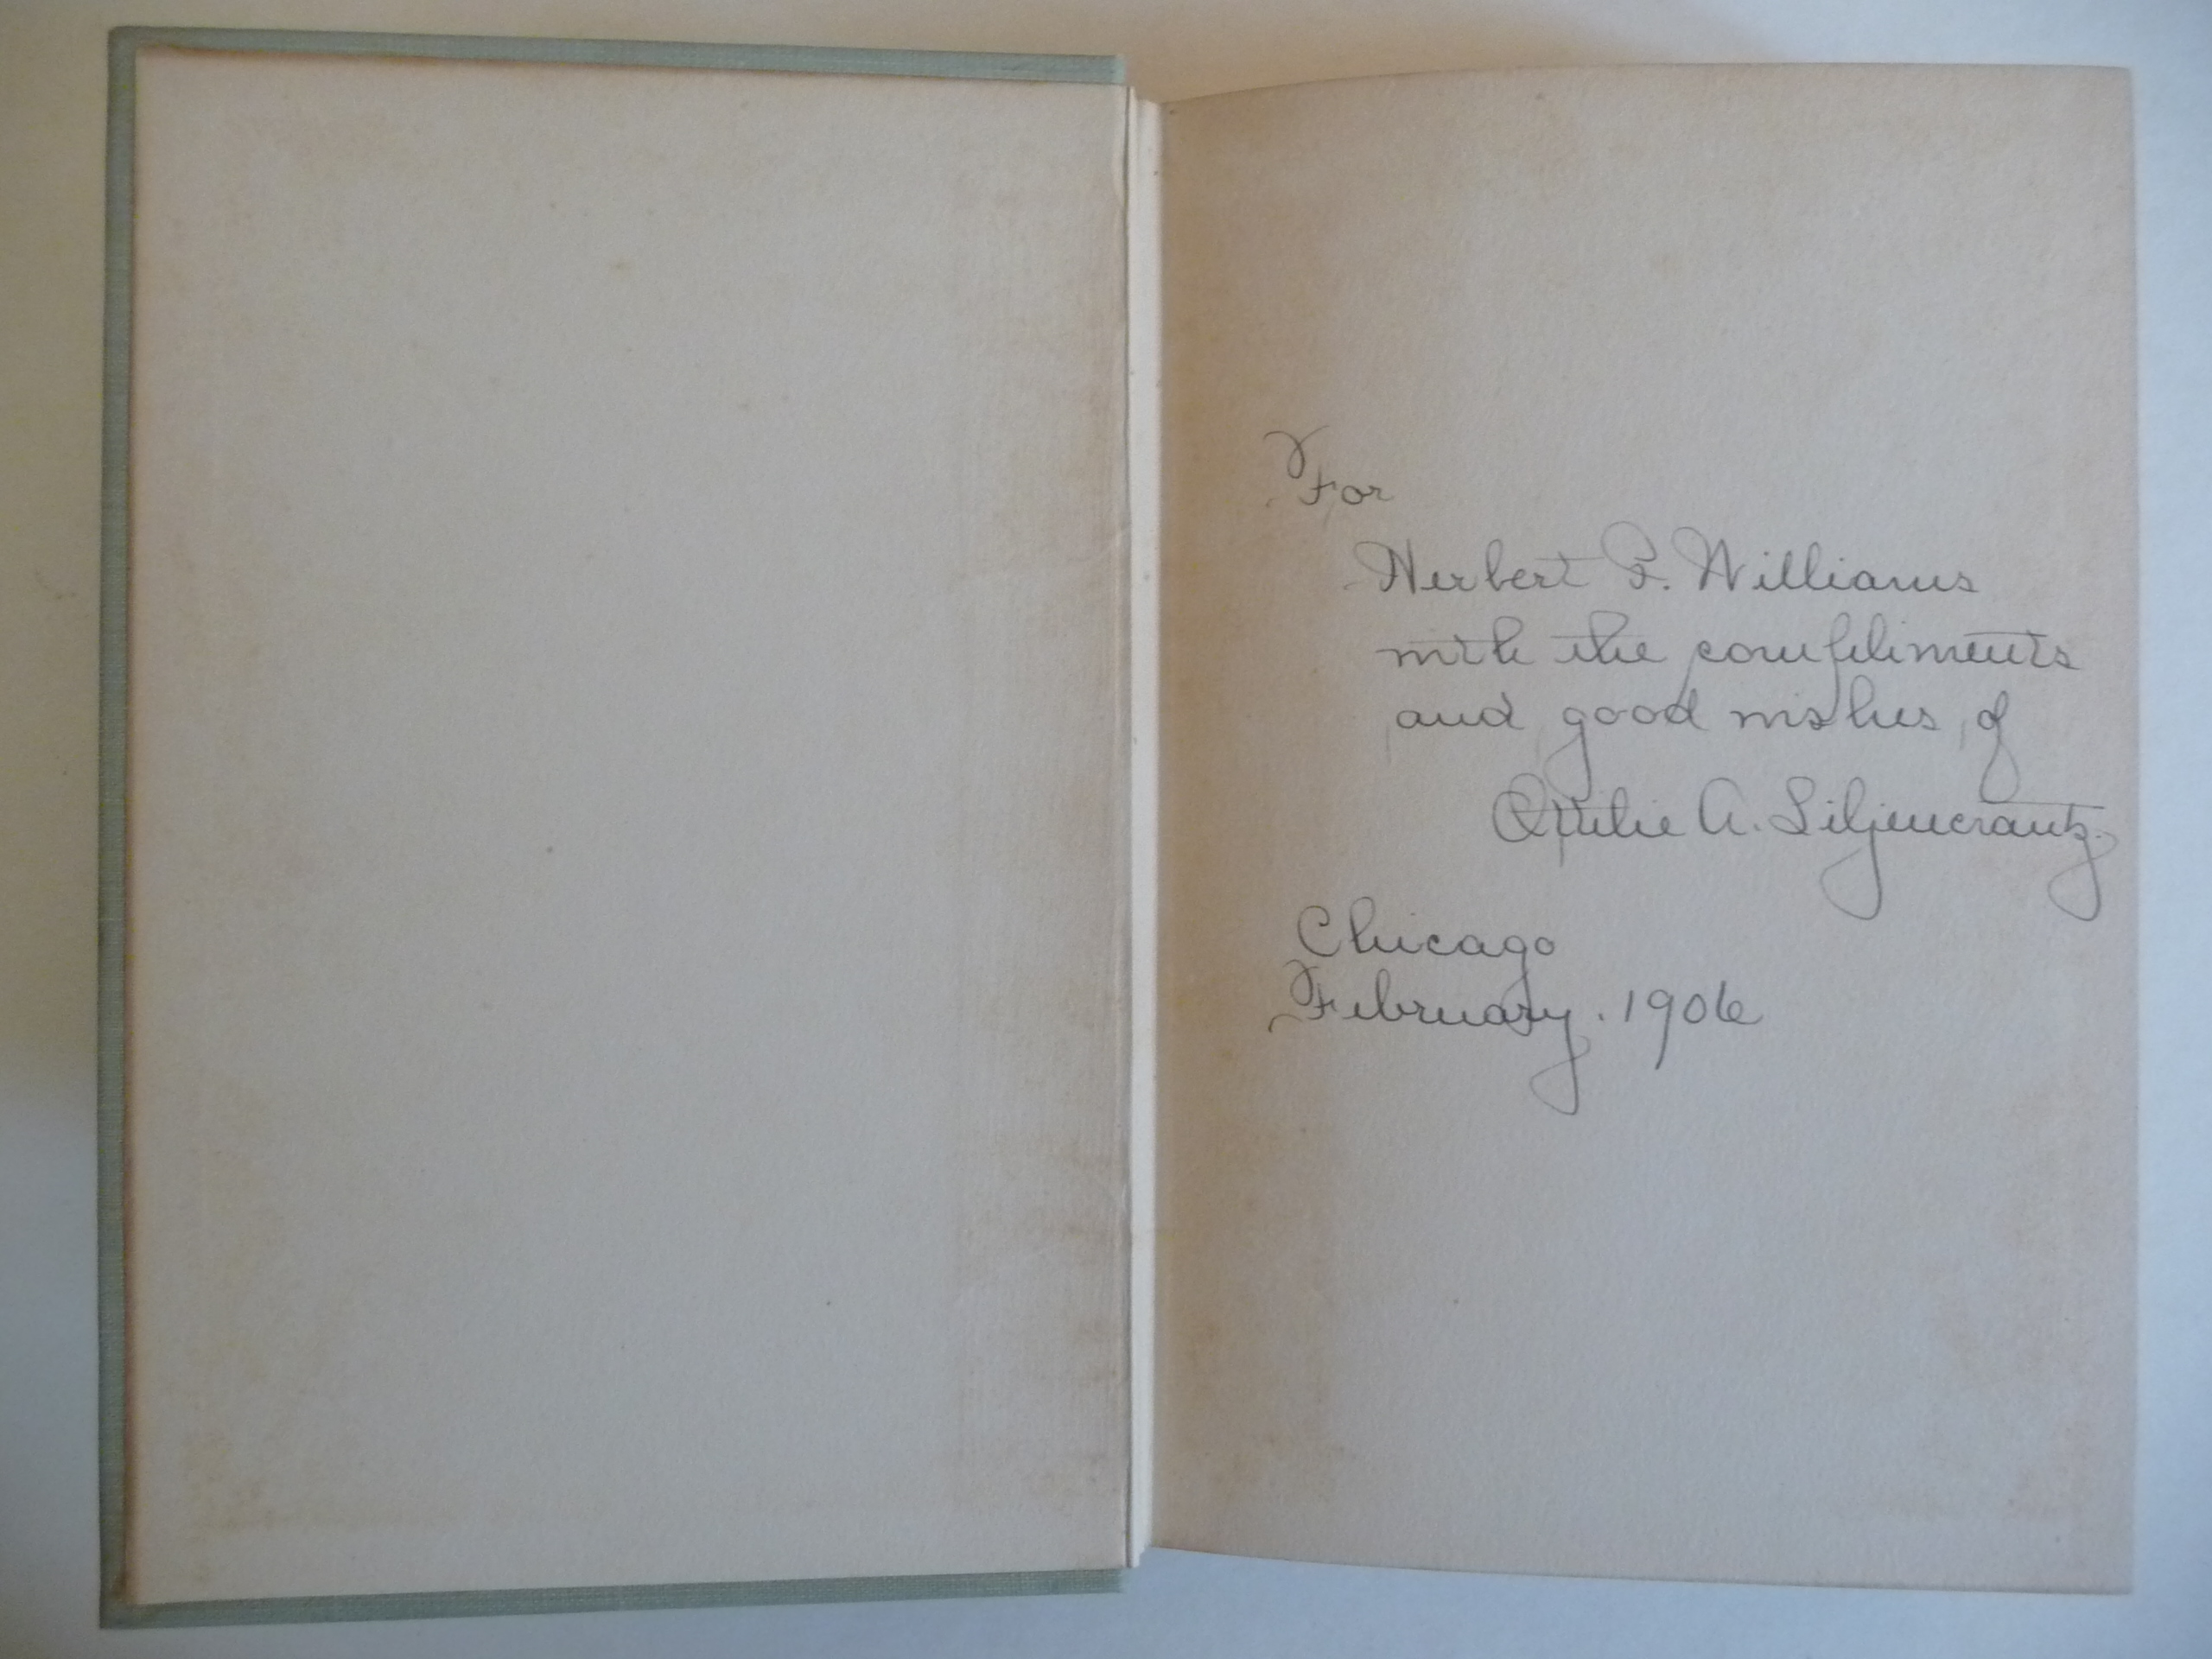 For
Herbert F. Williams
with the compliments
and good wishes of
Ottilie A. Liljencrantz.
Chicago
February. 1906